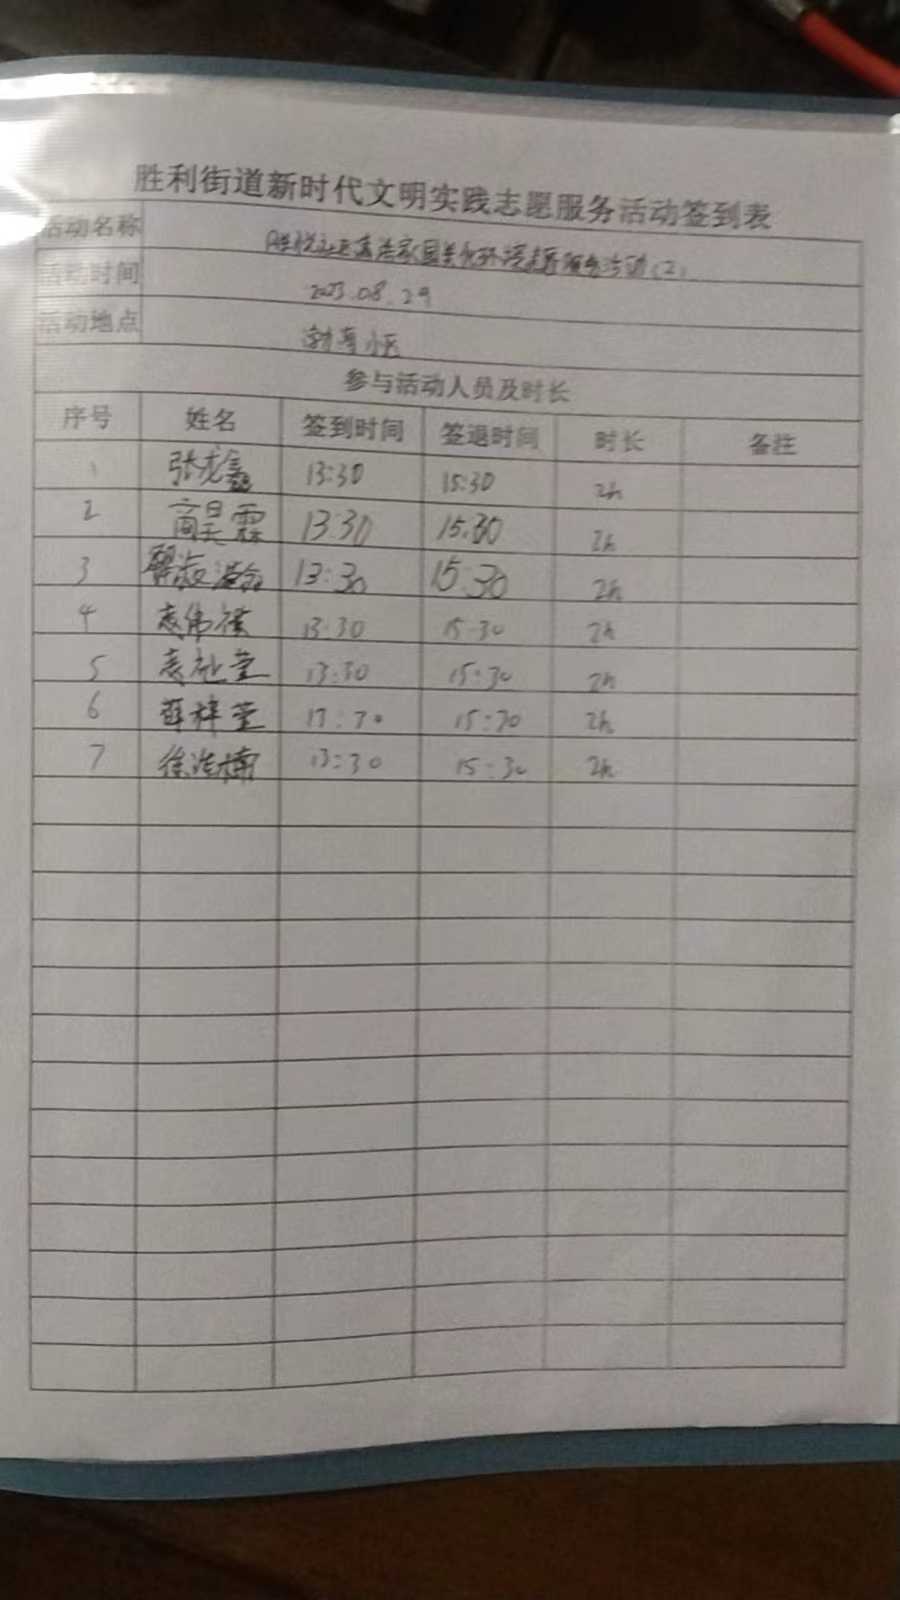 胜利街道新时代文明实践志愿服务活动签到表
活动名称 胜悦社区清洁家园美化环境志愿服务活动(2)
活动时间 2023.08.29
活动地点 小区
参与活动人员及时长
序号 姓名 签到时间 签退时间 时长 备注
1 张龙鑫 13:30 15:30 2h
2 商昊霖 13:30 15:30 2h
3 13:30 15:30 2h
4 袁伟祺 13:30 15:30 2h
5 袁 莹 13:30 15:30 2h
6 薛梓莹 13:30 15:30 2h
7 徐浩楠 13:30 15:30 2h